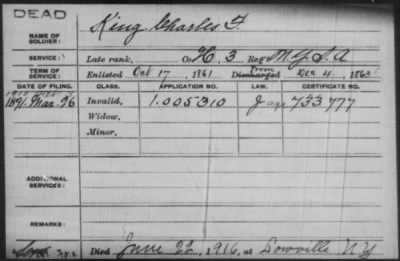 DEAD
NAME OF SOLDIER: King Charles F.
SERVICE: Late rank, Co. H. 3 Reg't N.Y.L.A
TERM OF SERVICE: Enlisted Oct 17, 1861 Discharged Dec 4, 1863
DATE OF FILING. CLASS. APPLICATION NO. LAW. CERTIFICATE NO.
1891. Mar. 26 Invalid, 1.005310 J 733777
Widow,
Minor,
ADDITIONAL SERVICES:
REMARKS:
Died June 22, 1916, at Lowville N.Y